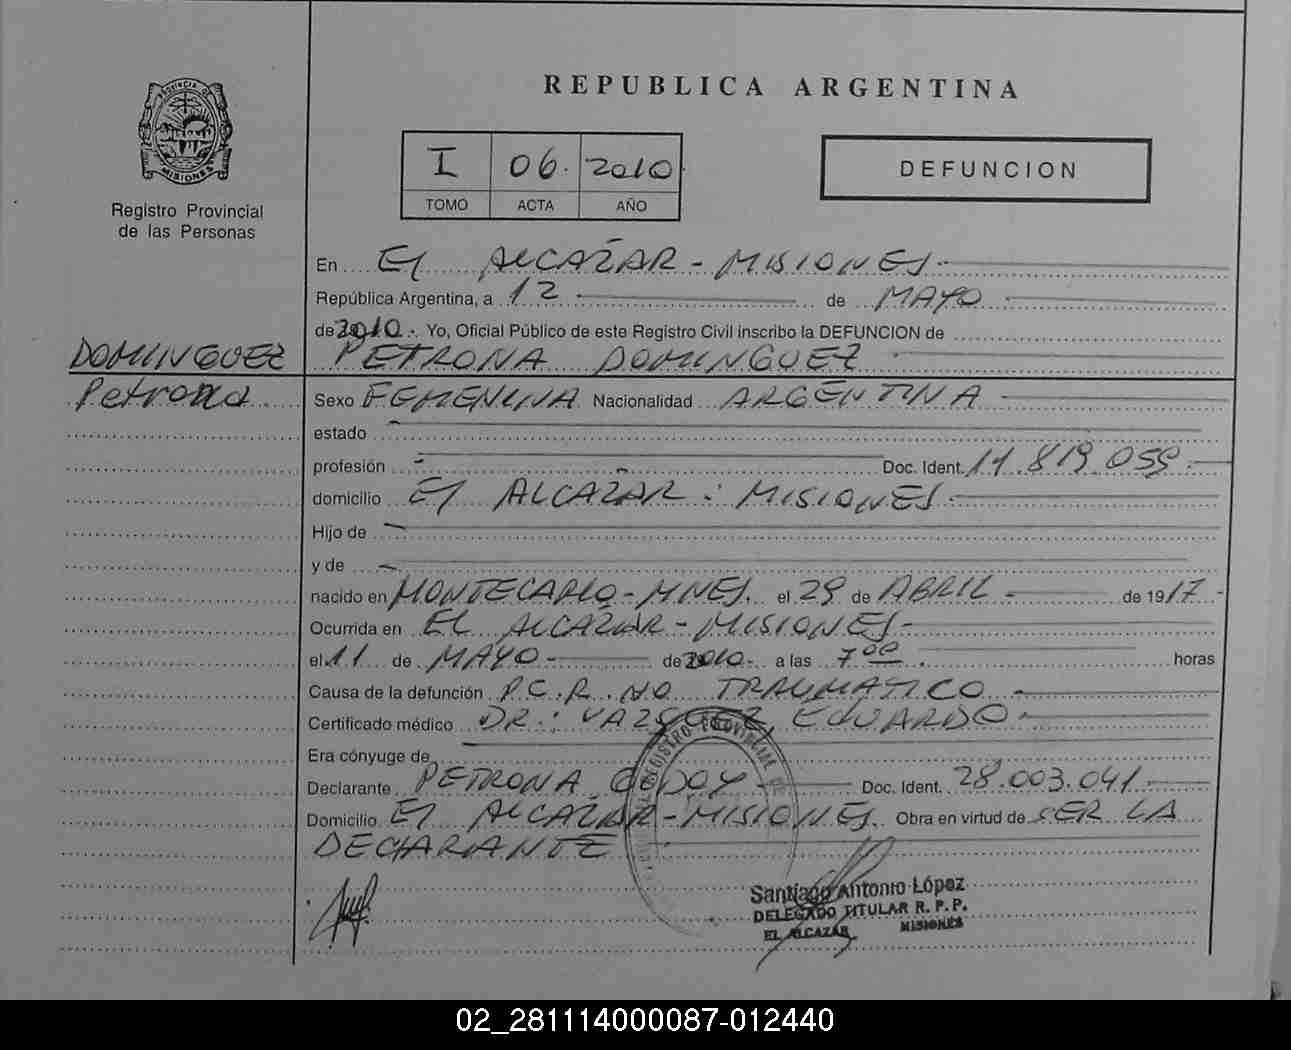 REPUBLICA ARGENTINA
PROVINCIA DE
MISIONES
Registro Provincial
de las Personas
I 06. 2010
TOMO ACTA AÑO
DEFUNCION
En El ALCAZAR - MISIONES
República Argentina, a 12 de MAYO
de 2010. Yo, Oficial Público de este Registro Civil inscribo la DEFUNCION de
DOMINGUEZ PETRONA DOMINGUEZ
Petrona Sexo FEMENINA Nacionalidad ARGENTINA
estado
profesión Doc. Ident. 11.819.059
domicilio El ALCAZAR - MISIONES
Hijo de
y de
nacido en MONTECARLO - MNES. el 29 de ABRIL de 1917
Ocurrida en EL ALCAZAR - MISIONES
el 11 de MAYO de 2010 a las 7 00 horas
Causa de la defunción P.C.R. NO TRAUMATICO
Certificado médico DR: VAZQUEZ, EDUARDO
Era cónyuge de
Declarante PETRONA GODOY Doc. Ident. 28.003.041
Domicilio El ALCAZAR - MISIONES. Obra en virtud de SER LA
DECLARANTE
REGISTRO PROVINCIAL DE
Santiago Antonio López
DELEGADO TITULAR R. P. P.
EL ALCAZAR MISIONES
02_281114000087-012440